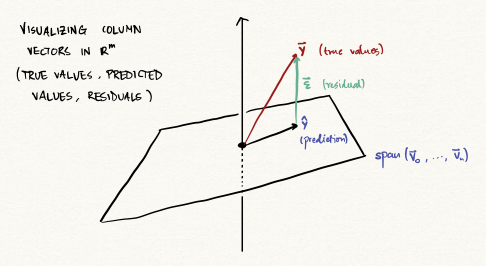 VISUALIZING COLUMN
VECTORS IN ℝᵐ
(TRUE VALUES, PREDICTED
VALUES, RESIDUALS)
y⃗ (true values)
ε⃗ (residual)
ŷ
(prediction)
span(v⃗₀, ..., v⃗ₙ)